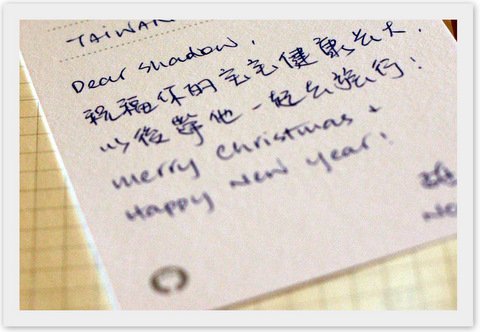 TAIWAN
Dear shadow,
祝福你的宝宝健康長大.
以後帶他一起去旅行!
merry christmas +
Happy New Year!
NO